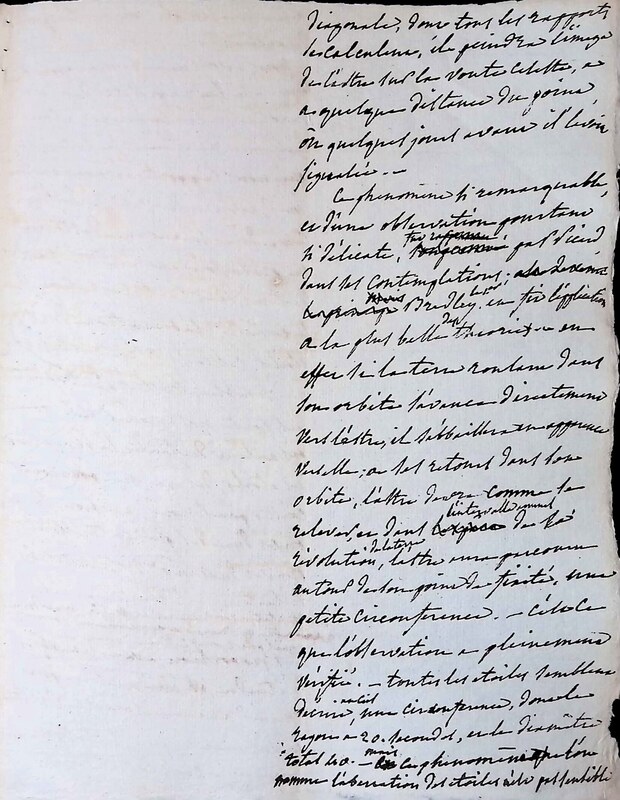 diagonale, dont tous les rapports
se calculent, il peindra l'image
de l'astre sur la voute celeste, a
a quelque distance du point,
où quelques jours avant il l'avoit
signalée. —
Ce phenomene si remarquable,
et d'une observation pourtant
si délicate, fut par Picard
dans ses contemplations;
mais Bradley en fit l'application
a la plus belle des theories — en
effet si la terre roulant dans
son orbite s'avance directement
vers l'astre, il s'abaissera en apparence
vers elle; a ses retours dans son
orbite, l'astre devra comme se
relever, et dans l'intervalle annuel de sa
révolution, de la terre l'astre aura parcouru
autour de son point de fixité, une
petite circonference. — C'est ce
que l'observation a pleinement
vérifié. — toutes les etoiles semblent
décrire, au ciel une circonference, dont le
rayon a 20. secondes, et le diamètre
total 40. — mais ce phenomène que l'on
nomme l'aberration des etoiles n'est pas sensible